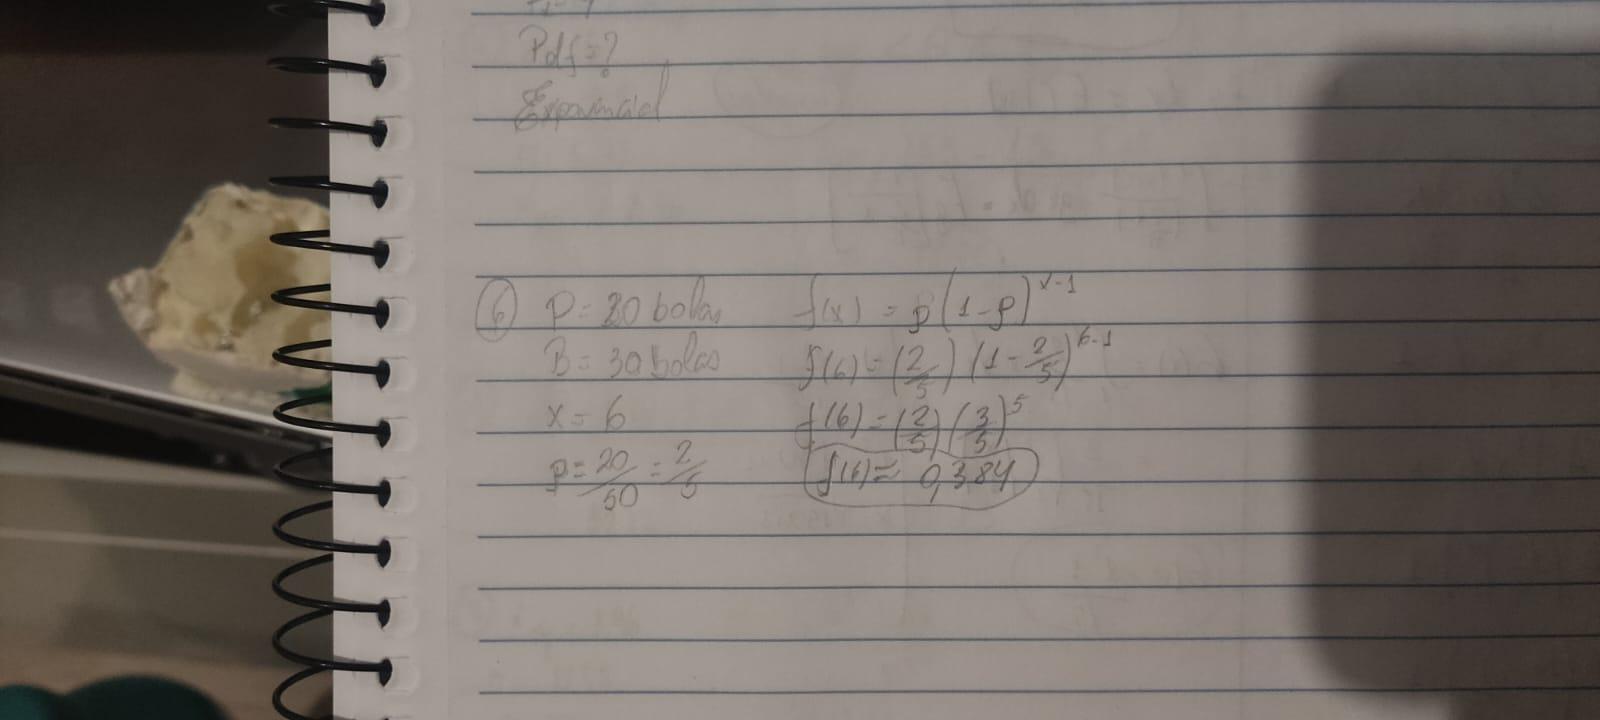 Pdf=?
Exponencial
6
P = 20 bolas
B = 30 bolas
x = 6
p = 20/50 = 2/5
f(x) = p(1-p)^x-1
f(6) = (2/5) (1-2/5)^6-1
f(6) = (2/5) (3/5)^5
f(6) = 0,384